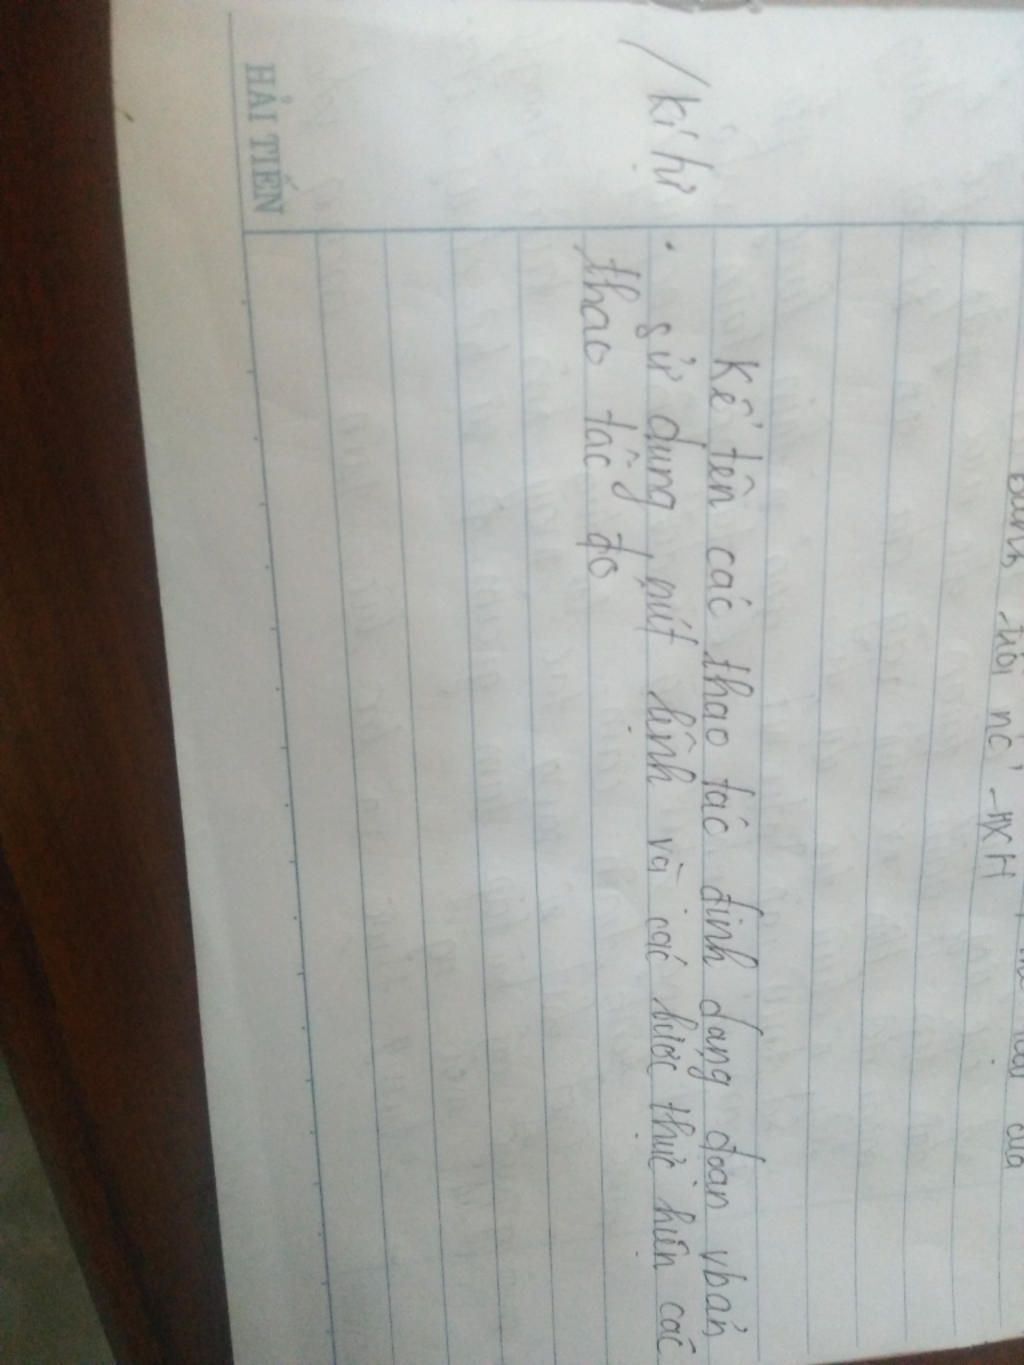 của
Đảnh tới nc' -HXH
Kể tên các thao tác định dạng đoạn vbản
/ kí hự · sử dụng nút lệnh và các bước thực hiện các
thao tác đó
HẢI TIẾN